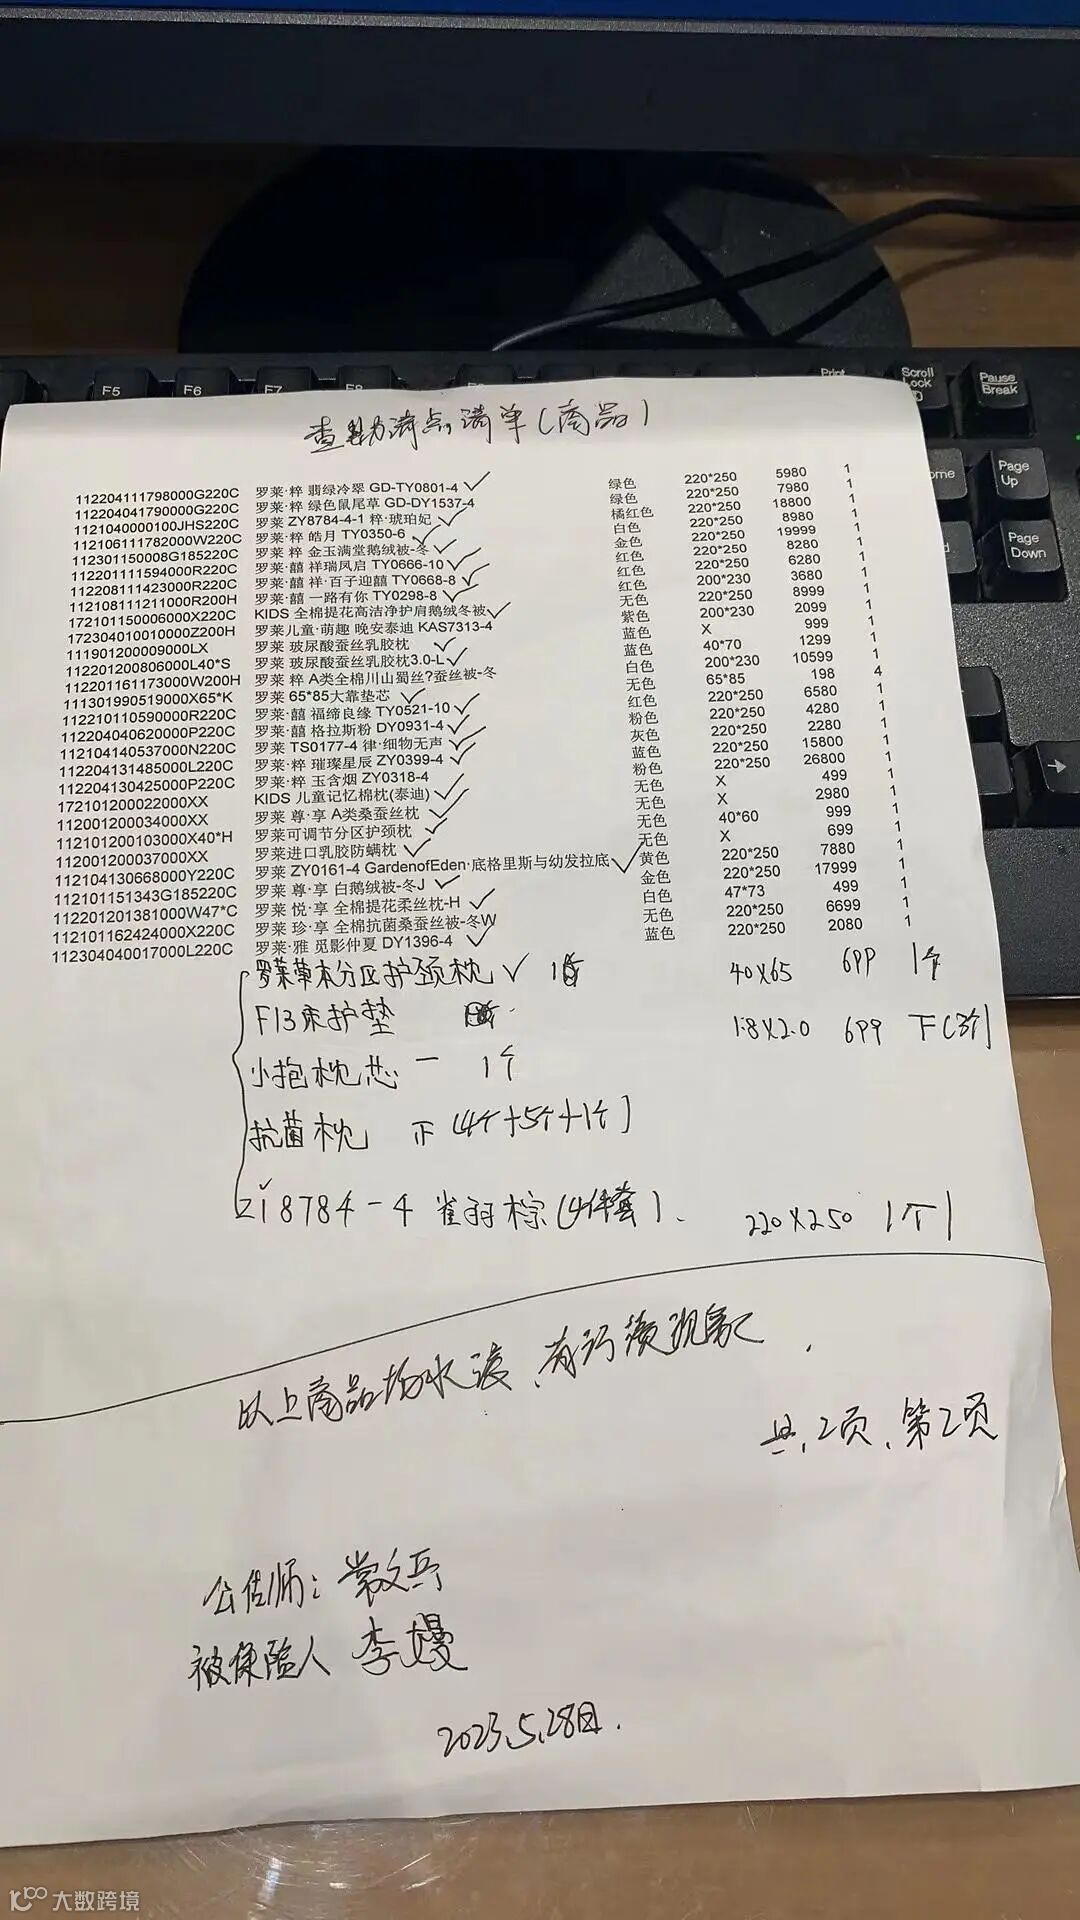 查勘清点清单(商品)
112204111798000G220C 罗莱·粹 翡绿冷翠 GD-TY0801-4 ✓ 绿色 220*250 5980 1
112204041790000G220C 罗莱·粹 绿色鼠尾草 GD-DY1537-4 绿色 220*250 7980 1
1121040000100JHS220C 罗莱 ZY8784-4-1 粹·琥珀妃 ✓ 橘红色 220*250 18800 1
112106111782000W220C 罗莱·粹 皓月 TY0350-6 ✓ 白色 220*250 8980 1
112301150008G185220C 罗莱·粹 金玉满堂鹅绒被-冬 ✓ 金色 220*250 19999 1
112201111594000R220C 罗莱·囍 祥瑞凤启 TY0666-10 ✓ 红色 220*250 8280 1
112208111423000R220C 罗莱·囍 祥·百子迎囍 TY0668-8 ✓ 红色 220*250 6280 1
112108111211000R200H 罗莱·囍 一路有你 TY0298-8 ✓ 红色 200*230 3680 1
172101150006000X220C KIDS 全棉提花高洁净护肩鹅绒冬被 ✓ 无色 220*250 8999 1
172304010010000Z200H 罗莱儿童·萌趣 晚安泰迪 KAS7313-4 紫色 200*230 2099 1
111901200009000LX 罗莱 玻尿酸蚕丝乳胶枕 ✓ 蓝色 X 999 1
112201200806000L40*S 罗莱 玻尿酸蚕丝乳胶枕3.0-L ✓ 蓝色 40*70 1299 1
112201161173000W200H 罗莱 粹 A类全棉川山蜀丝?蚕丝被-冬 白色 200*230 10599 1
111301990519000X65*K 罗莱 65*85大靠垫芯 ✓ 无色 65*85 198 4
112210110590000R220C 罗莱·囍 福缔良缘 TY0521-10 ✓ 红色 220*250 6580 1
112204040620000P220C 罗莱·囍 格拉斯粉 DY0931-4 ✓ 粉色 220*250 4280 1
112104140537000N220C 罗莱 TS0177-4 律·细物无声 ✓ 灰色 220*250 2280 1
112204131485000L220C 罗莱·粹 璀璨星辰 ZY0399-4 ✓ 蓝色 220*250 15800 1
112204130425000P220C 罗莱·粹 玉含烟 ZY0318-4 粉色 220*250 26800 1
172101200022000XX KIDS 儿童记忆棉枕(泰迪) ✓ 无色 X 499 1
112001200034000XX 罗莱 尊·享 A类桑蚕丝枕 ✓ 无色 X 2980 1
112101200103000X40*H 罗莱可调节分区护颈枕 ✓ 无色 40*60 999 1
112001200037000XX 罗莱进口乳胶防螨枕 ✓ 无色 X 699 1
112104130668000Y220C 罗莱 ZY0161-4 GardenofEden·底格里斯与幼发拉底 ✓ 黄色 220*250 7880 1
112101151343G185220C 罗莱 尊·享 白鹅绒被-冬J ✓ 金色 220*250 17999 1
112201201381000W47*C 罗莱 悦·享 全棉提花柔丝枕-H ✓ 白色 47*73 499 1
112101162424000X220C 罗莱 珍·享 全棉抗菌桑蚕丝被-冬W 无色 220*250 6699 1
112304040017000L220C 罗莱·雅 觅影仲夏 DY1396-4 ✓ 蓝色 220*250 2080 1
罗莱草本分区护颈枕 ✓ 40X65 699 1个
F13床护垫 1.8X2.0 699 下(3个)
小抱枕芯 一 1个
抗菌枕 下(4个+5个+1个)
ZY8784-4 雀羽棕(4件套). 220X250 1个
以上商品均水浸、有污渍现象.
共2页、第2页
公估师: 常文兵
被保险人 李嫚
2023.5.28日.
大数跨境